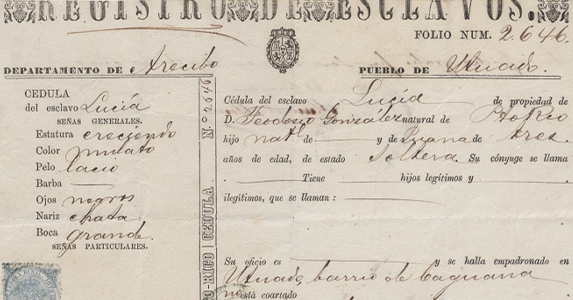 REGISTRO DE ESCLAVOS.
FOLIO NUM. 2.646.
DEPARTAMENTO DE Arecibo
PUEBLO DE Utuado.
CEDULA
del esclavo Lucía
SEÑAS GENERALES.
Estatura creciendo
Color mulato
Pelo lacio
Barba
Ojos negros
Nariz chata
Boca grande
SEÑAS PARTICULARES.
N.o 2646
CEDULA
TO-RICO
Cédula del esclavo Lucía de propiedad de
D. Teodoro González natural de Pto Rico
hijo natl. de y de Juana de tres
años de edad, de estado Soltera. Su cónyuge se llama
Tiene hijos legítimos y
ilegítimos, que se llaman:
Su oficio es y se halla empadronado en
Utuado, barrio de Caguana
no está coartado